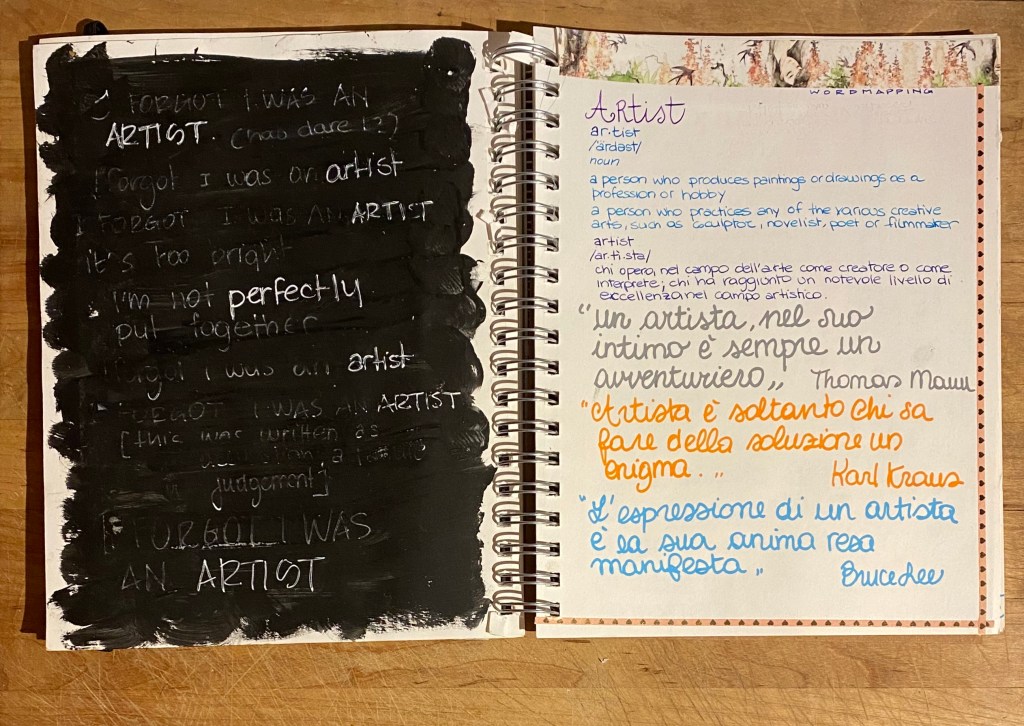 I FORGOT I WAS AN
ARTIST. (how dare I?)
I forgot I was an artist
I FORGOT I WAS AN ARTIST
it's too bright
I'm not perfectly
put together
forgot I was an artist
I FORGOT I WAS AN ARTIST
[this was written as
a
judgement]
I FORGOT I WAS
AN ARTIST
WORDMAPPING
Artist
ar·tist
/ärdəst/
noun
a person who produces paintings or drawings as a
profession or hobby
a person who practices any of the various creative
arts, such as sculptor, novelist, poet or filmmaker
artist
/ar·ti·sta/
chi opera, nel campo dell'arte come creatore o come
interprete; chi ha raggiunto un notevole livello di
eccellenza nel campo artistico.
"un artista, nel suo
intimo è sempre un
avventuriero„ Thomas Mann
"Artista è soltanto chi sa
fare della soluzione un
enigma..„
Karl Kraus
"L'espressione di un artista
è la sua anima resa
manifesta„
Bruce Lee